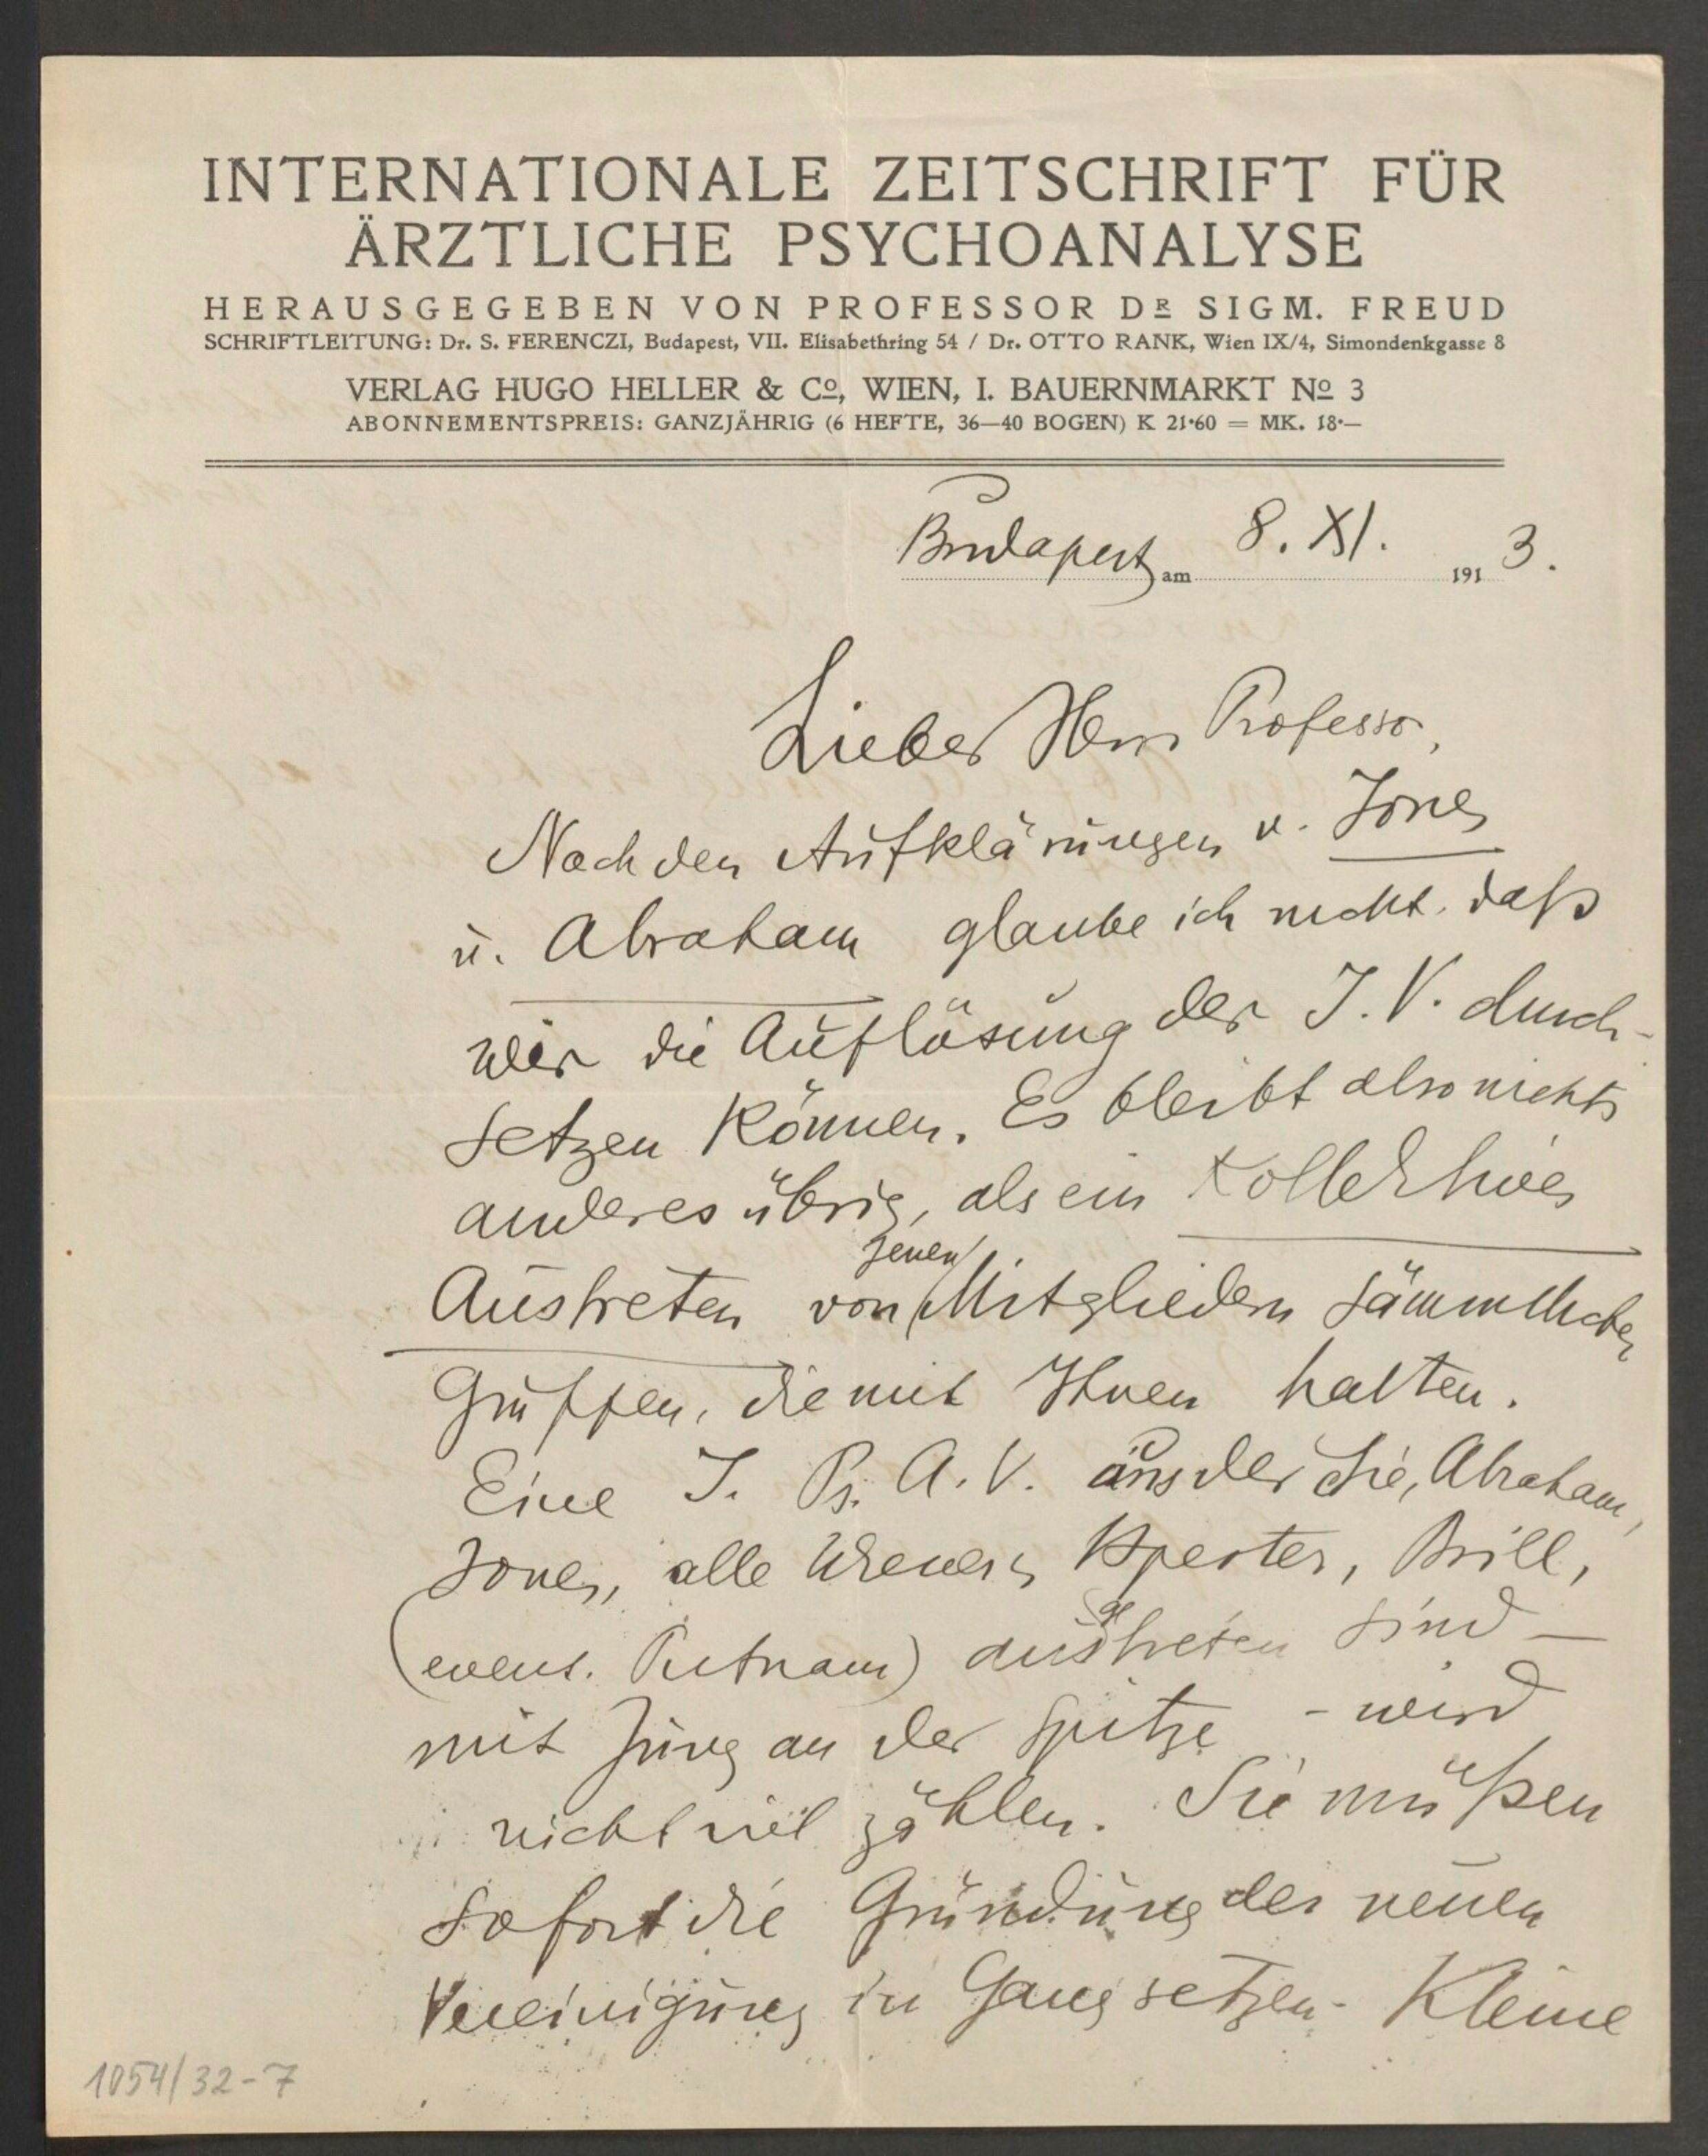 INTERNATIONALE ZEITSCHRIFT FÜR
ÄRZTLICHE PSYCHOANALYSE
HERAUSGEGEBEN VON PROFESSOR DR SIGM. FREUD
SCHRIFTLEITUNG: Dr. S. FERENCZI, Budapest, VII. Elisabethring 54 / Dr. OTTO RANK, Wien IX/4, Simondenkgasse 8
VERLAG HUGO HELLER & Co, WIEN, I. BAUERNMARKT No 3
ABONNEMENTSPREIS: GANZJÄHRIG (6 HEFTE, 36—40 BOGEN) K 21·60 = MK. 18·—
Budapest am 8. XI. 1913.
Lieber Herr Professor,
Nach den Aufklärungen v. Jones
u. Abraham glaube ich nicht, daß
wir die Auflösung der I. V. durch-
setzen können. Es bleibt also nichts
anderes übrig, als ein Kollektives
jenen
Austreten von Mitgliedern sämmtlicher
Gruppen, die mit Ihnen halten.
Eine I. Ps. A. V. aus der Sie, Abraham,
Jones, alle Wiener, Bpester, Brill,
(event. Putnam) ausgetreten sind —
mit Jung an der Spitze – wird
nicht viel zählen. Sie müßen
sofort die Gründung der neuen
Vereinigung in Gang setzen. Kleine
1054/32-7